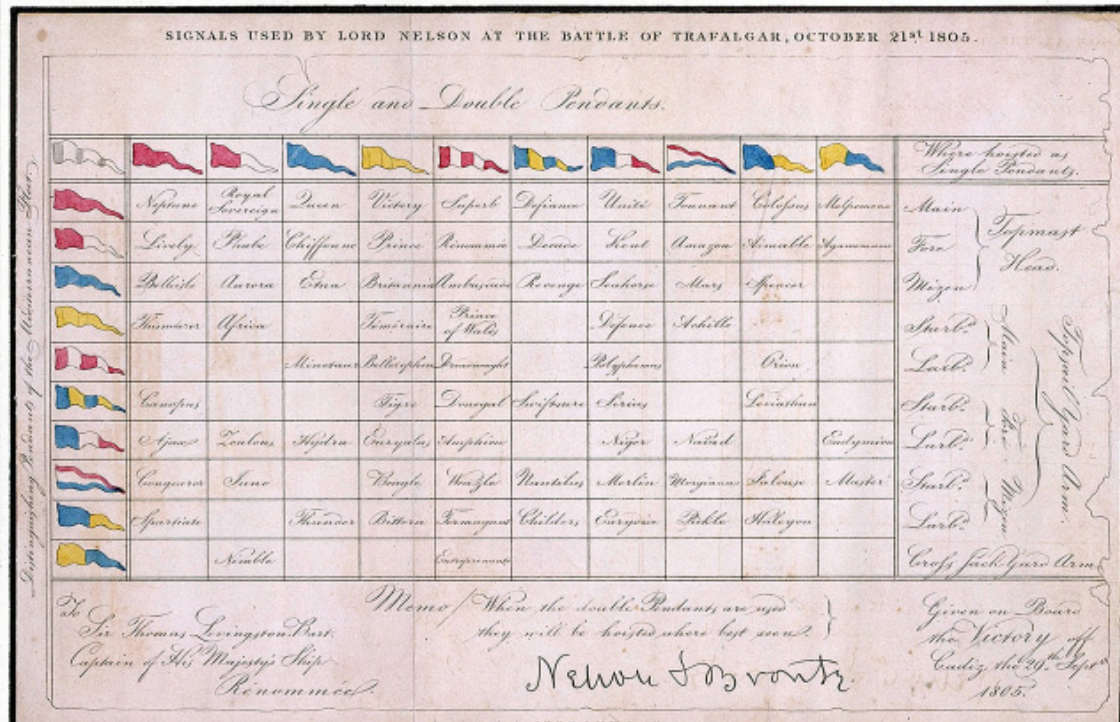 SIGNALS USED BY LORD NELSON AT THE BATTLE OF TRAFALGAR, OCTOBER 21st 1805.
Single and Double Pendants.
Where hoisted as
Single Pendants.
Distinguishing Pendants of the Mediterranean Fleet.
Neptune Royal Sovereign Queen Victory Superb Defiance Unité Tonnant Colossus Melpomene Main
Lively Phœbe Chiffonne Prince Decade Kent Amazon Aimable Agamemnon Fore
Topmast
Head.
Belleisle Aurora Etna Britannia Ambuscade Revenge Seahorse Mars Spencer Mizen
Thunderer Africa Téméraire Prince of Wales Defence Achille Starbd.
Minotaur Bellerophon Dreadnought Polyphemus Orion Larbd.
Main
Canopus Tigre Donegal Swiftsure Sirius Leviathan Starbd.
Ajax Zealous Hydra Euryalus Amphion Niger Naiad Endymion Larbd.
Fore
Conqueror Juno Beagle Weazle Nautilus Merlin Morgiana Jalouse Master Starbd.
Spartiate Thunder Bittern Termagant Childers Eurydice Pickle Halcyon Larbd.
Mizen
Topsail Yard Arm.
Nimble Entreprenante Cross Jack Yard Arm
To
Sir Thomas Levingston Bart.
Captain of His Majesty's Ship
Renommee.
Memo/ When the double Pendants are used
they will be hoisted where best seen.
Nelson & Bronte
Given on Board
the Victory off
Cadiz the 29th Sept
1805.